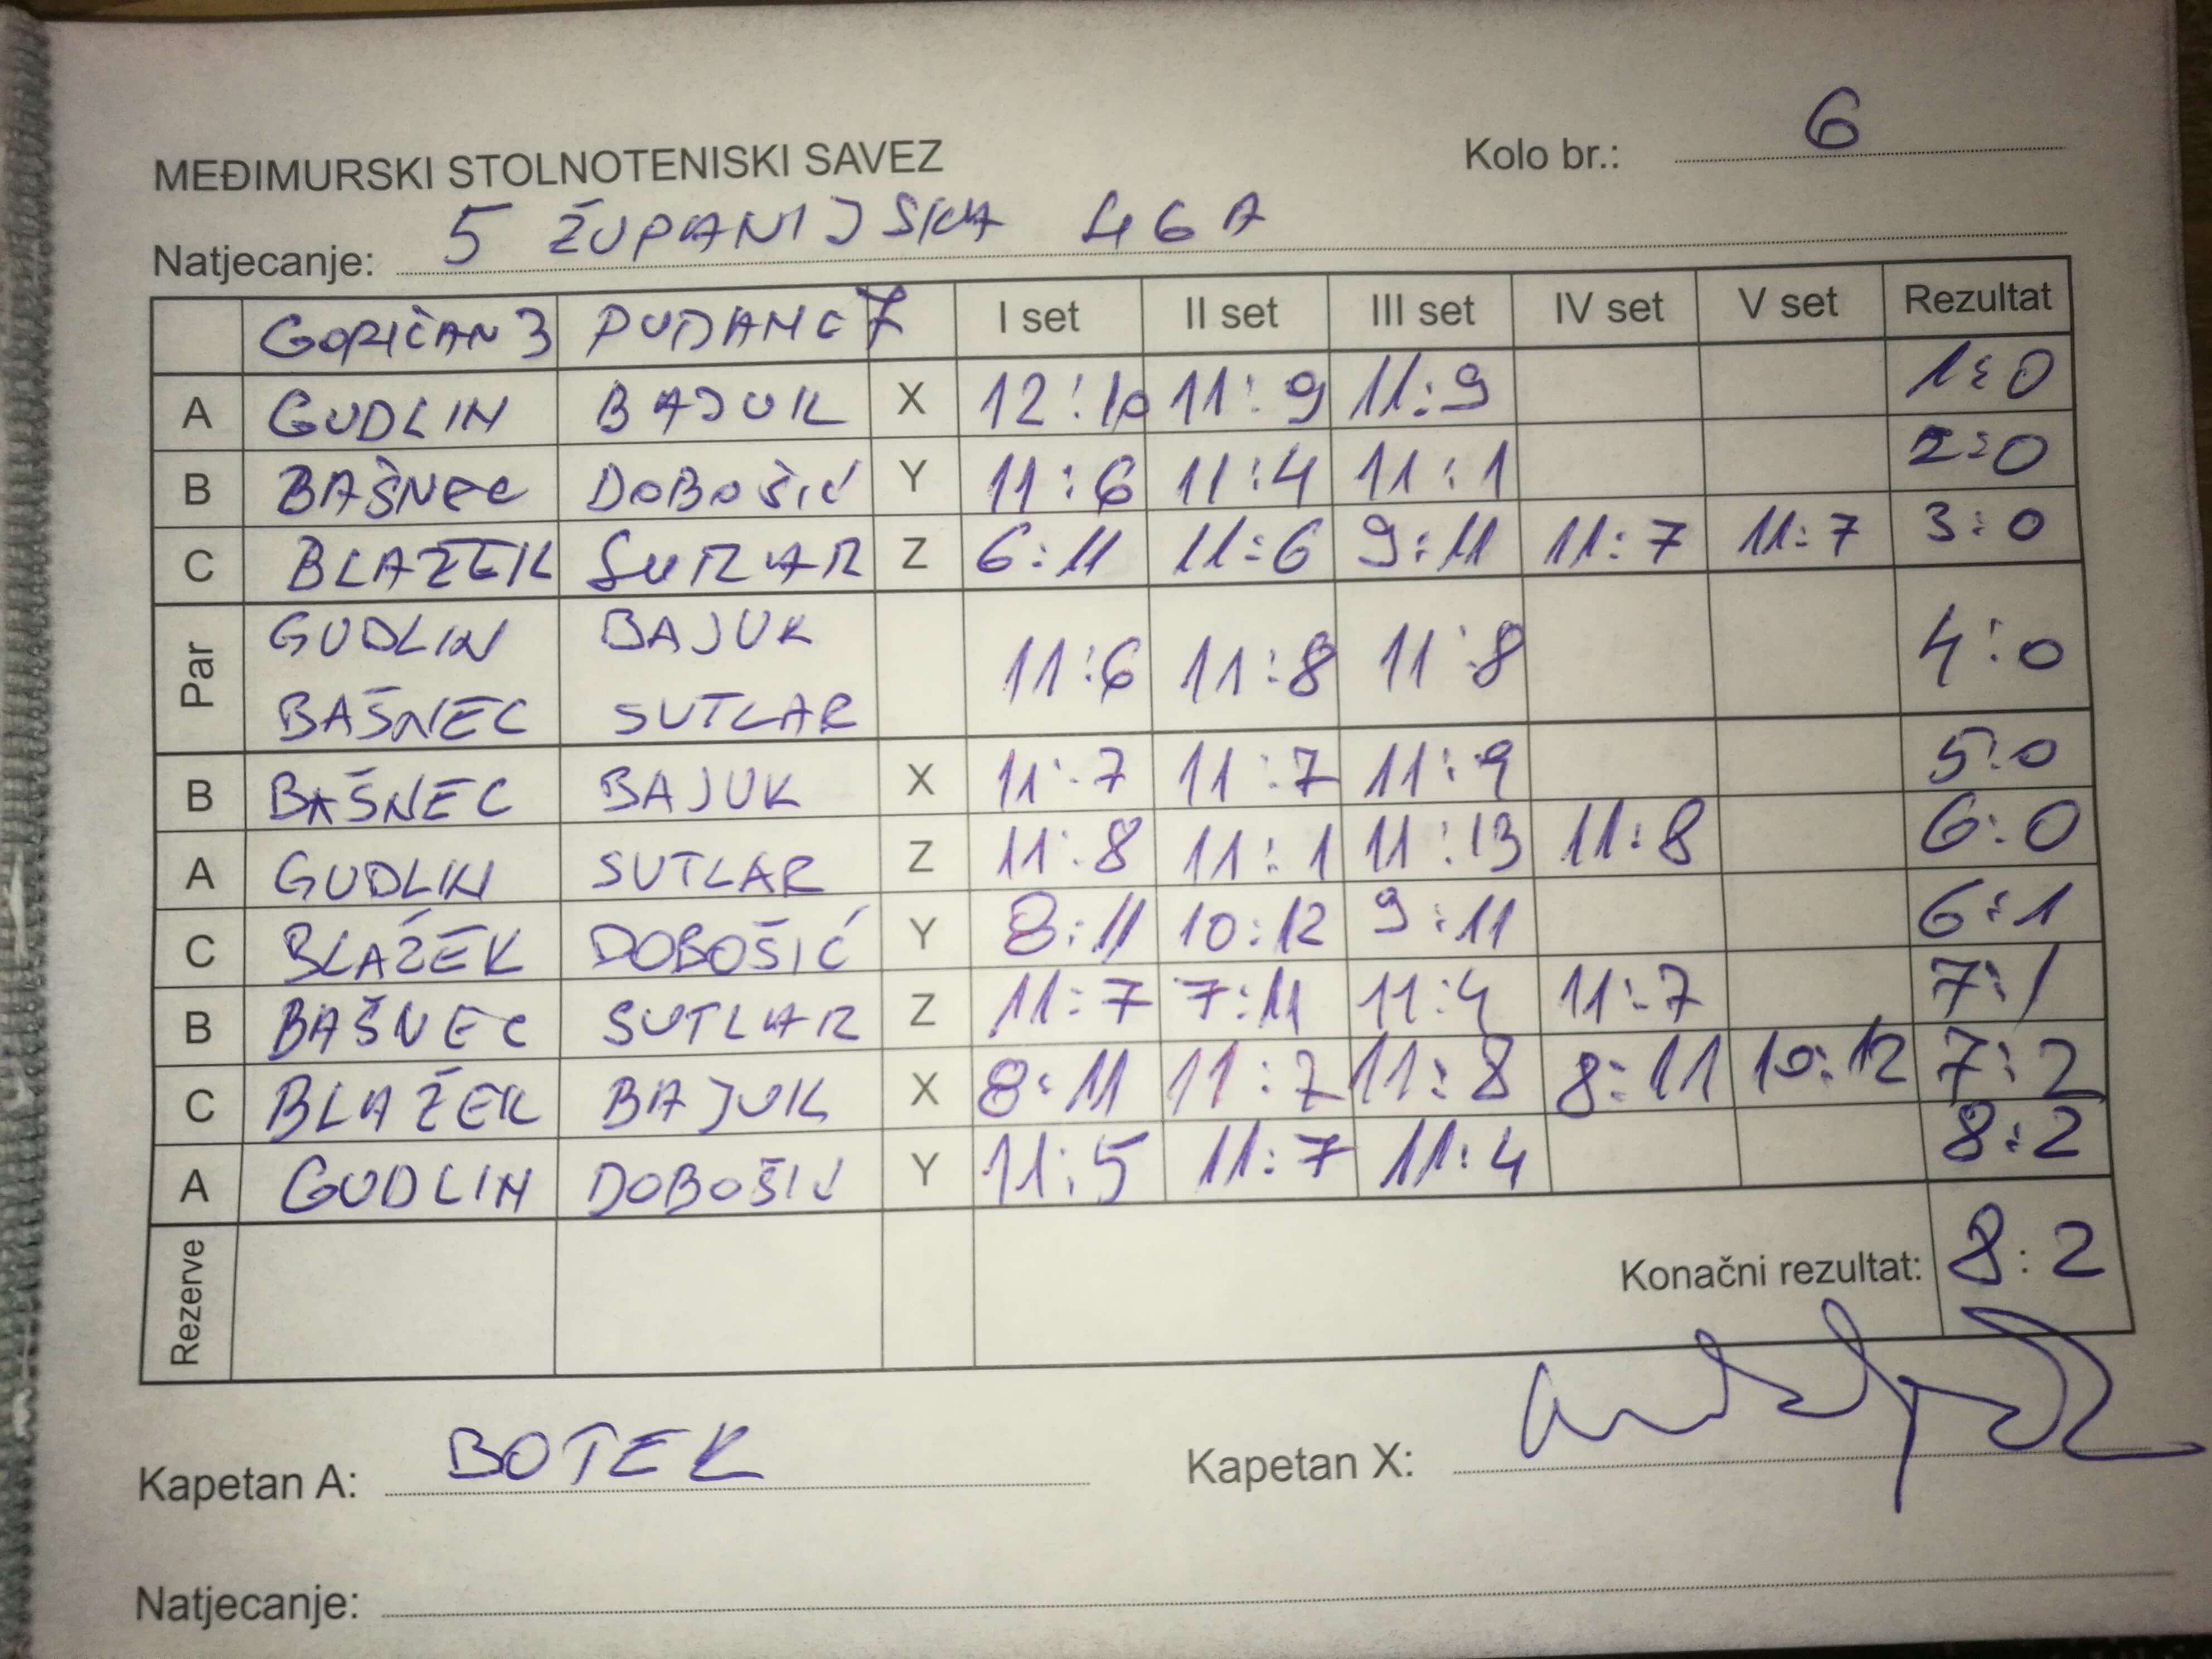 MEĐIMURSKI STOLNOTENISKI SAVEZ Kolo br.: 6
Natjecanje: 5 ŽUPANIJSKA
GORIČAN 3 I set II set III set IV set V set Rezultat
A GUDLIN BAJUK X 12:10 11:9 11:9 1:0
B BAŠNEC DOBOŠIĆ Y 11:6 11:4 11:1 2:0
C BLAZEK SUTLAR Z 6:11 11:6 9:11 11:7 11:7 3:0
Par GUDLIN BAJUK 11:6 11:8 11:8 4:0
BAŠNEC SUTLAR
B BAŠNEC BAJUK X 11:7 11:7 11:9 5:0
A GUDLIN SUTLAR Z 11:8 11:1 11:13 11:8 6:0
C BLAŽEK DOBOŠIĆ Y 8:11 10:12 9:11 6:1
B BAŠNEC SUTLAR Z 11:7 7:11 11:4 11:7 7:1
C BLAŽEK BAJUK X 8:11 11:7 11:8 8:11 10:12 7:2
A GUDLIN DOBOŠIĆ Y 11:5 11:7 11:4 8:2
Rezerve Konačni rezultat: 8:2
Kapetan A: BOTEK Kapetan X:
Natjecanje: